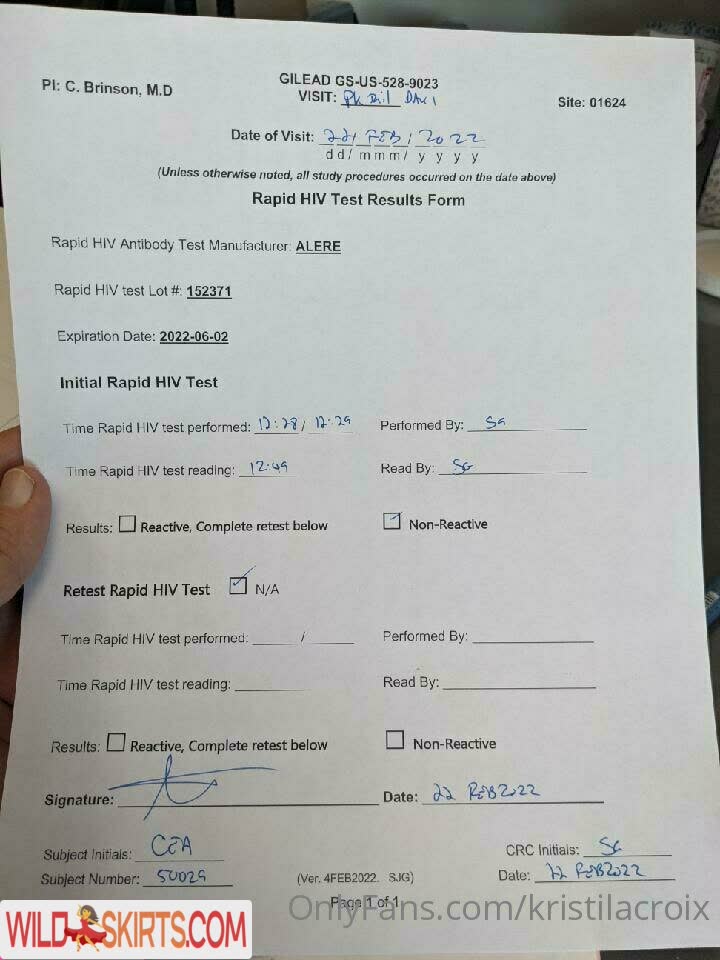 PI: C. Brinson, M.D
GILEAD GS-US-528-9023
VISIT: DAY 1
Site: 01624
Date of Visit: 22/ FEB / 2022
d d / m m m / y y y y
(Unless otherwise noted, all study procedures occurred on the date above)
Rapid HIV Test Results Form
Rapid HIV Antibody Test Manufacturer: ALERE
Rapid HIV test Lot #: 152371
Expiration Date: 2022-06-02
Initial Rapid HIV Test
Time Rapid HIV test performed: 12:28 / 12:29 Performed By: SG
Time Rapid HIV test reading: 12:49 Read By: SG
Results: Reactive, Complete retest below Non-Reactive
Retest Rapid HIV Test N/A
Time Rapid HIV test performed: / Performed By:
Time Rapid HIV test reading: Read By:
Results: Reactive, Complete retest below Non-Reactive
Signature: Date: 22 FEB2022
Subject Initials: CEA CRC Initials: SG
Subject Number: 50029 (Ver. 4FEB2022. SJG) Date: 22 FEB2022
Page 1 of 1
OnlyFans.com/kristilacroix
WILD-SKIRTS.COM